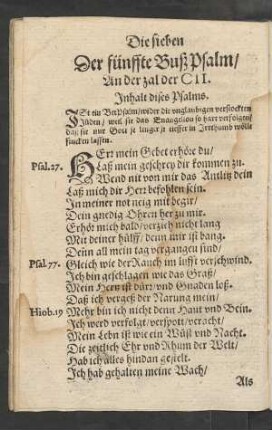 Die sieben
Der fünffte Buß Psalm/
An der zal der CII.
Inhalt dises Psalms.
ISt ein Bet Psalm/ wider die unglaubigen verstockten
Juden/ weil sie das Euangelion so hart verfolgten/
daß sie nur Gott je lenger je tieffer in Irrthumb wölle
sincken lassen.
HErr mein Gebet erhöre du/
Psal.27. Laß mein geschrey dir kommen zu.
Wend nit von mir das Antlitz dein
Laß mich dir Hertz befohlen sein.
In meiner not neig mit begir/
Dein gnedig Ohren her zu mir.
Erhör mich bald/ verzieh nicht lang
Mit deiner hülff/ denn mir ist bang.
Denn all mein tag vergangen sind/
Psal.77. Gleich wie der Rauch im lufft verschwind.
Ich bin geschlagen wie das Graß/
Mein Hertz ist dürr/ und Gnaden loß.
Daß ich vergeß der Narung mein/
Hiob.19 Mehr bin ich nicht denn Haut und Bein.
Ich werd verfolgt/ verspott/ veracht/
Mein Lebn ist wie ein Wüst und Nacht.
Die zeitlich Ehr und Rhum der Welt/
Hab ich alles hindan gestelt.
Ich hab gehalten meine Wach/
Als